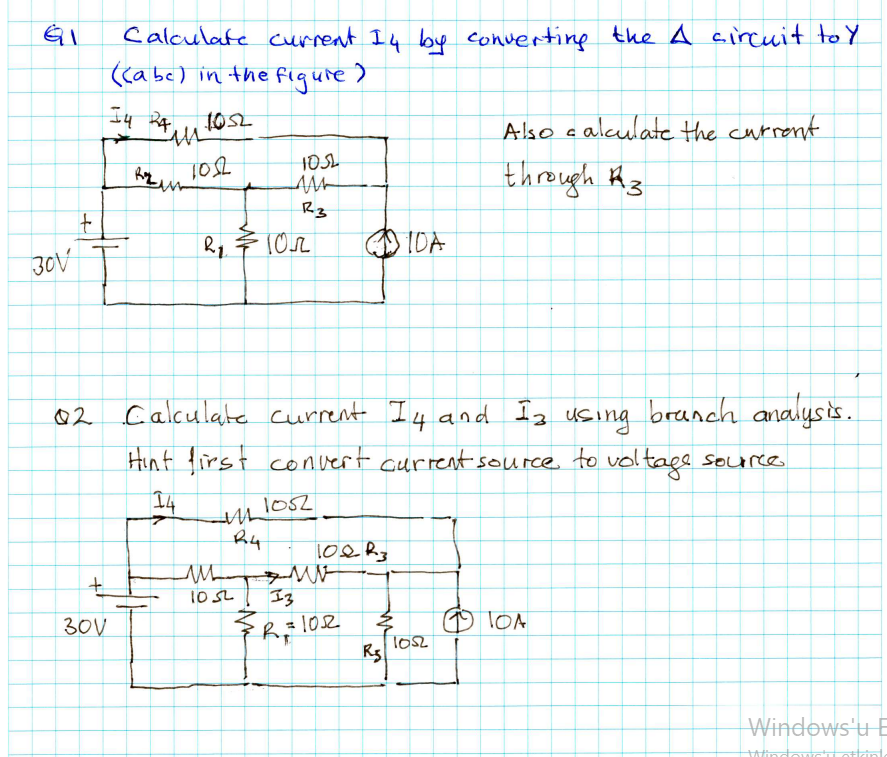 Q1 Calculate current I4 by converting the Δ circuit to Y
((abc) in the figure)
I4 R4 10Ω
Also calculate the current
R2 10Ω 10Ω
through R3
R3
+
R1 10Ω 10A
30V
Q2 Calculate current I4 and I3 using branch analysis.
Hint first convert current source to voltage source
I4 10Ω
R4
10Ω R3
+
10Ω I3
30V R1 = 10Ω 10A
R5 10Ω
Windows'u E